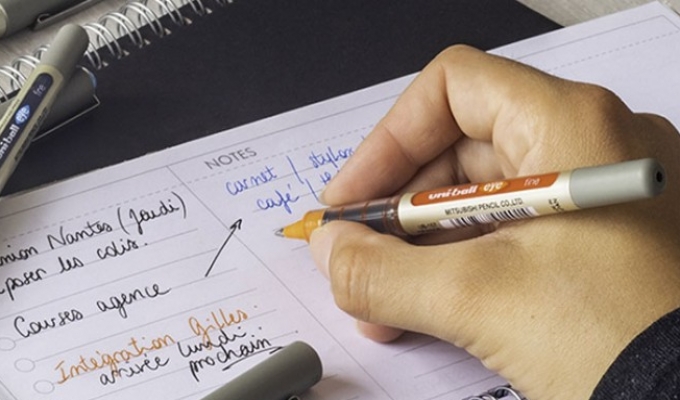 NOTES
carnet | stylos
café |
union Nantes (Jeudi)
poser les colis.
Courses agence
Intégration Gilles.
arrivée lundi
prochain
uni-ball eye fine
MITSUBISHI PENCIL CO.,LTD.
uni-ball eye fine